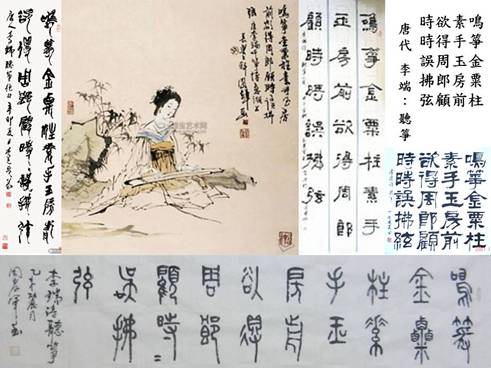 鳴箏金粟柱
素手玉房前
欲得周郎顧
時時誤拂弦
唐代 李端：聽箏
鳴箏金粟柱
素手玉房前
欲得周郎顧
時時誤拂絃
鳴箏金粟柱素手
玉房前欲得周郎
顧時時誤拂弦
鳴箏金粟柱素手玉房
前欲得周郎顧時時誤拂
弦
鳴箏金粟柱素手玉房前
欲得周郎顧時時誤拂弦
鳴箏
金粟
柱素
手玉
房前
欲得
周郎
顧時〻
誤拂
弦
李端詩聽箏